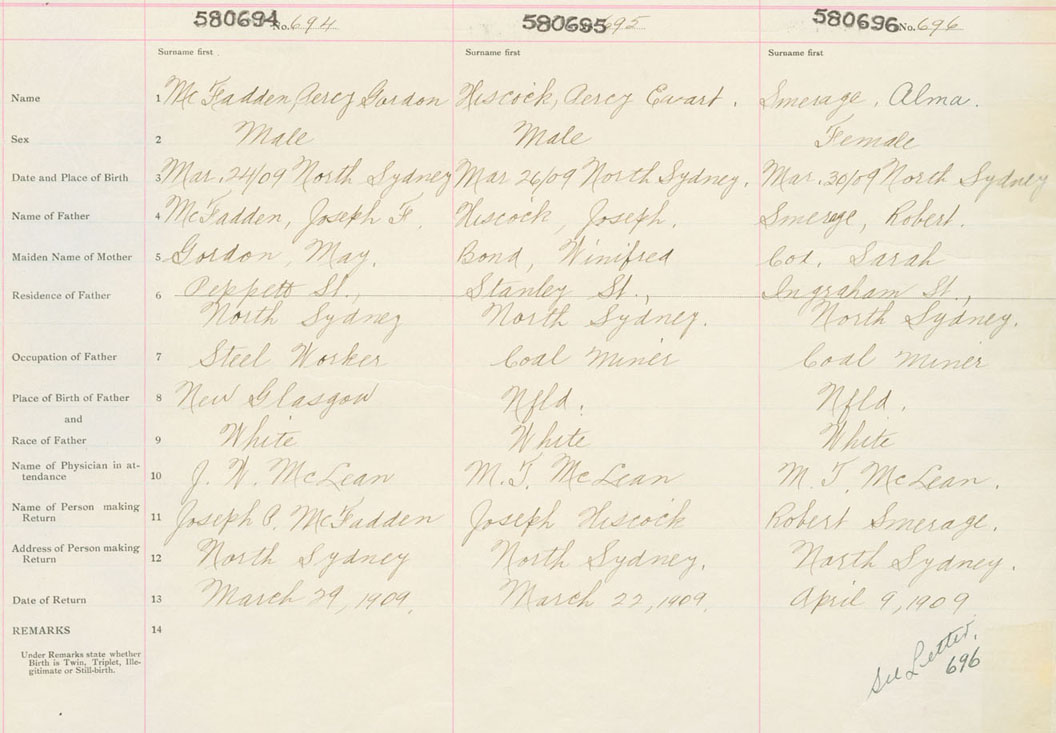 580694 No. 694 580695 695 580696 No. 696
Surname first Surname first Surname first
Name 1 McFadden, Percy Gordon Hiscock, Percy Ewart. Smerage, Alma.
Sex 2 Male Male Female
Date and Place of Birth 3 Mar. 24/09 North Sydney Mar 26/09 North Sydney. Mar. 30/09 North Sydney
Name of Father 4 McFadden, Joseph F. Hiscock, Joseph. Smerage, Robert.
Maiden Name of Mother 5 Gordon, May. Bond, Winifred Cox, Sarah
Residence of Father 6 Peppett St., Stanley St., Ingraham St.,
North Sydney North Sydney. North Sydney.
Occupation of Father 7 Steel Worker Coal Miner Coal Miner
Place of Birth of Father 8 New Glasgow Nfld. Nfld.
and
Race of Father 9 White White White
Name of Physician in at-
tendance 10 J. W. McLean M. T. McLean M. T. McLean.
Name of Person making
Return 11 Joseph P. McFadden Joseph Hiscock Robert Smerage.
Address of Person making
Return 12 North Sydney North Sydney. North Sydney.
Date of Return 13 March 29, 1909. March 22, 1909. April 9, 1909
REMARKS 14
Under Remarks state whether
Birth is Twin, Triplet, Ille-
gitimate or Still-birth.
See Letter.
696